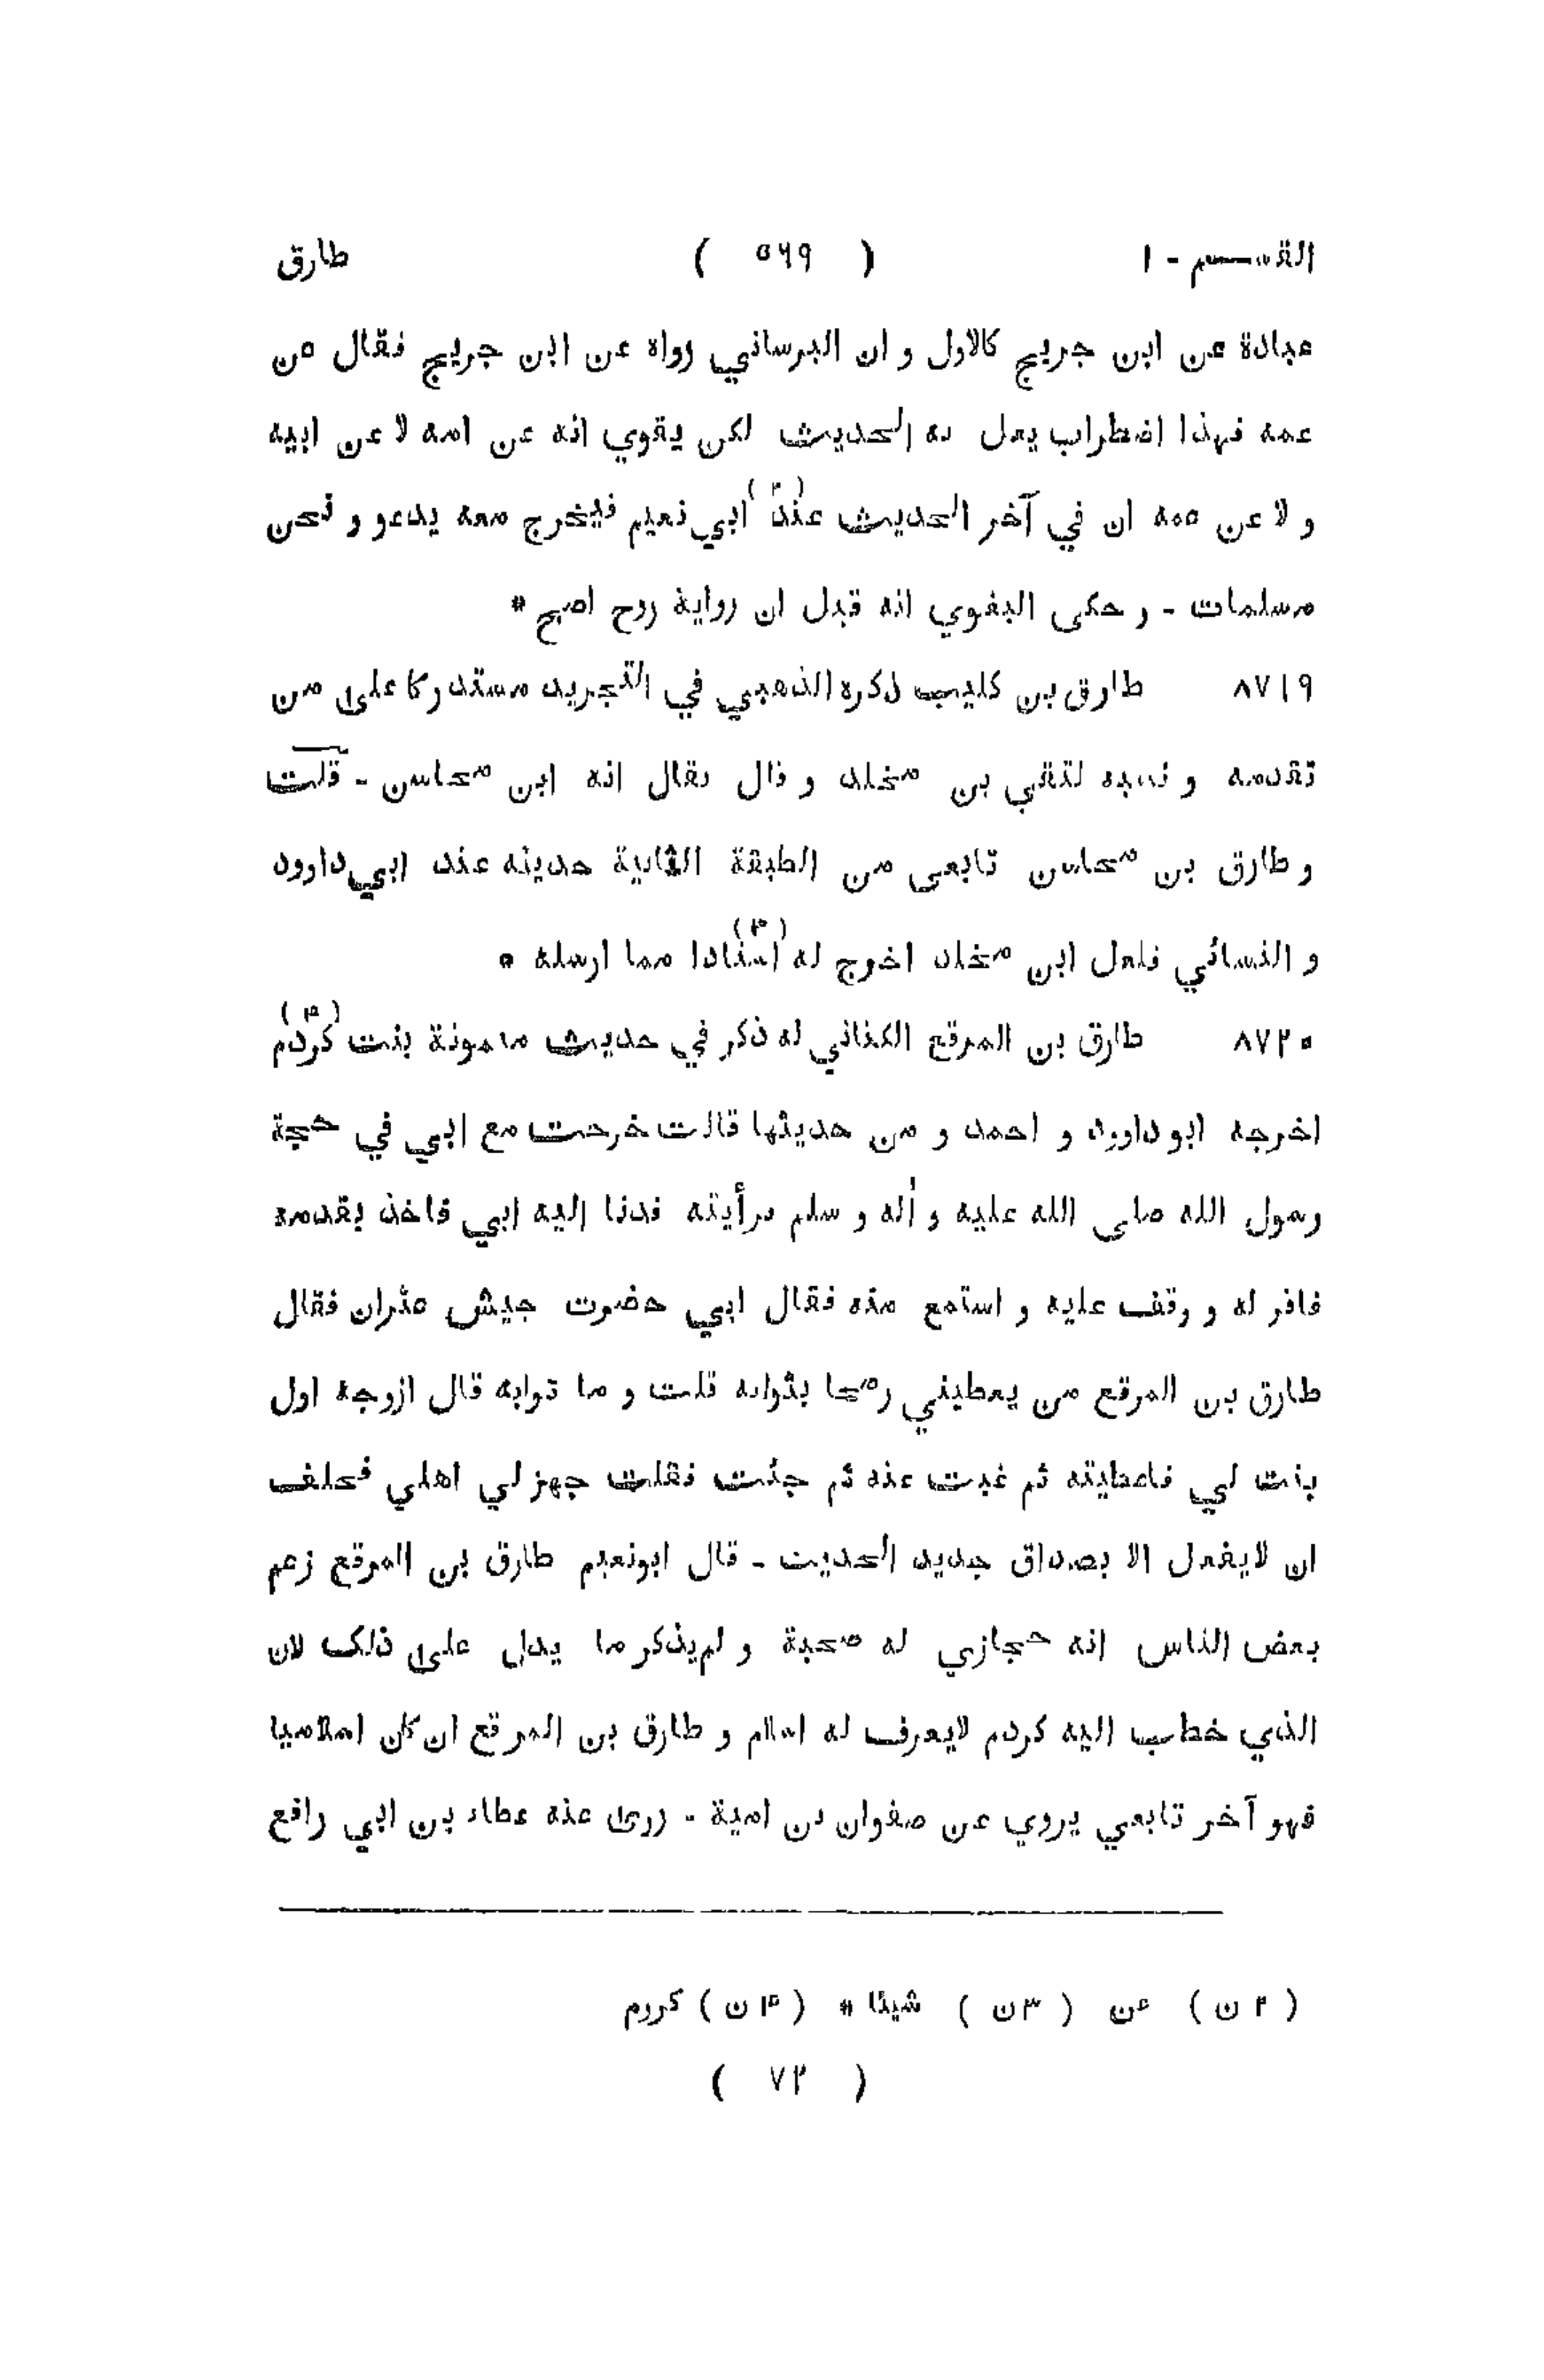 القسم - ١ ( ٥٦٩ ) طارق
عبادة عن ابن جريج كالاول و ان البرساني رواه عن ابن جريج فقال من
عمه فهذا اضطراب يعل به الحديث لكن يقوي انه عن امه لا عن ابيه
و لا عن عمه ان في آخر الحديث عند (٢) ابي نعيم فيخرج معه يدعو و نحن
مسلمات - و حكى البغوي انه قيل ان رواية روح اصح *
٨٧١٩ طارق بن كليب ذكره الذهبي في التجريد مستدركا على من
تقدمه و نسبه لتقي بن مخلد و قال يقال انه ابن محاسن - قلت
و طارق بن محاسن تابعى من الطبقة الثانية حديثه عند ابي داوود
و النسائي فلعل ابن مخلد اخرج له (٣) اسنادا مما ارسله *
٨٧٢٠ طارق بن المرقع الكناني له ذكر في حديث ميمونة بنت كردم (۴)
اخرجه ابو داوود و احمد و من حديثها قالت خرجت مع ابي في حجة
رسول الله صلى الله عليه و آله و سلم فرأيته فدنا اليه ابي فاخذ بقدمه
فاقر له و وقف عليه و استمع منه فقال ابي حضرت جيش عثران فقال
طارق بن المرقع من يعطيني رمحا بثوابه قلت و ما ثوابه قال ازوجه اول
بنت لي فاعطيته ثم غبت عنه ثم جئت فقلت جهز لي اهلي فحلف
ان لايفعل الا بصداق جديد الحديث - قال ابونعيم طارق بن المرقع زعم
بعض الناس انه حجازي له صحبة و لم يذكر ما يدل على ذلك لان
الذي خطب اليه كردم لايعرف له اسلام و طارق بن المرقع ان كان اسلاميا
فهو آخر تابعي يروي عن صفوان بن امية - روى عنه عطاء بن ابي رافع
( ٢ ن ) عن ( ٣ ن ) شيئا * ( ۴ ن ) كروم
( ٧٢ )